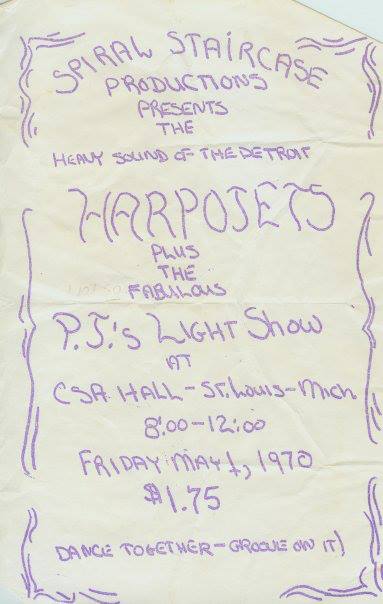 SPIRAL STAIRCASE
PRODUCTIONS
PRESENTS
THE
HEAVY SOUND OF THE DETROIT
HARPOJETS
PLUS
THE
FABULOUS
P.J.'s LIGHT SHOW
AT
CSA HALL - ST. LOUIS - MICH
8:00 - 12:00
FRIDAY MAY 1, 1970
$1.75
DANCE TOGETHER - GROOVE ON IT)